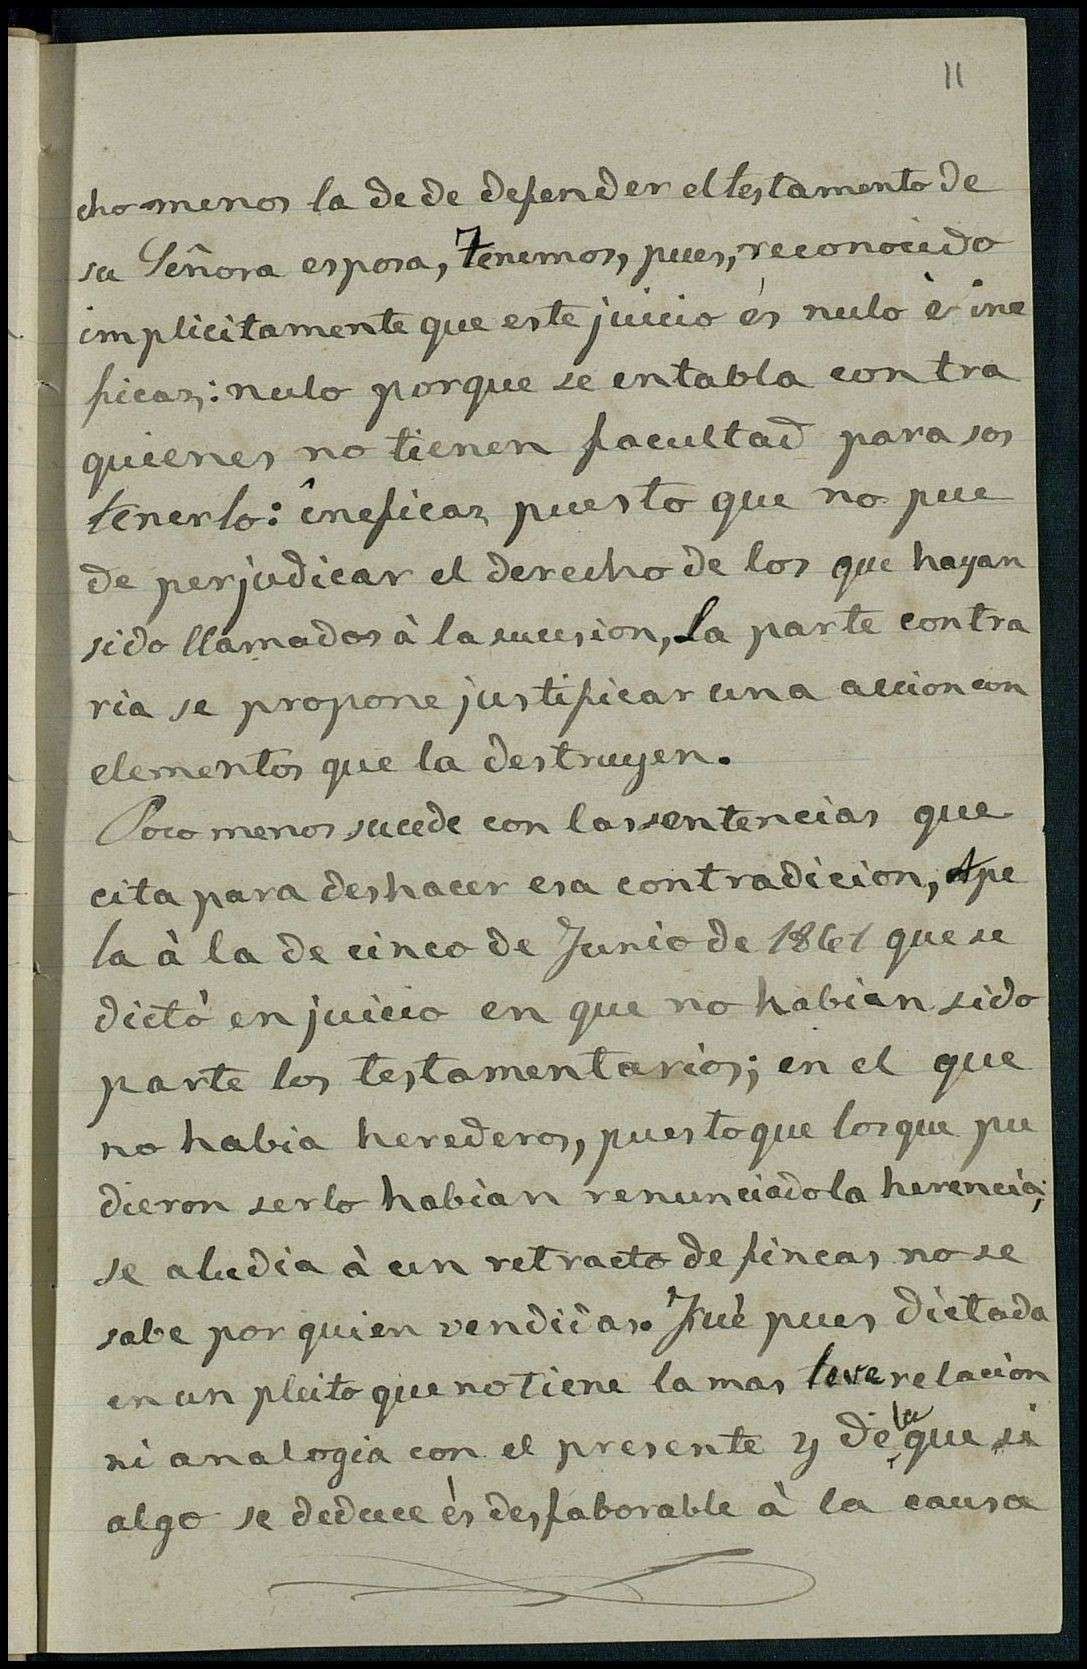 11
cho menos la de de defender el testamento de
su Señora esposa, Tenemos, pues, reconocido
implicitamente que este juicio és nulo è ine
ficaz: nulo porque se entabla contra
quienes no tienen facultad para sos
tenerlo: ineficaz puesto que no pue
de perjudicar el derecho de los que hayan
sido llamados à la sucesion, La parte contra
ria se propone justificar una accion con
elementos que la destruyen.
Poco menos sucede con las sentencias que
cita para deshacer esa contradicion, Ape
la à la de cinco de Junio de 1861 que se
dictó en juicio en que no habian sido
parte los testamentarios; en el que
no habia herederos, puesto que los que pu
dieron serlo habian renunciado la herencia;
se aludia à un retracto de fincas no se
sabe por quien vendidas. Fué pues dictada
en un pleito que no tiene la mas leve relacion
ni analogia con el presente y de la que si
algo se deduce és desfaborable à la causa